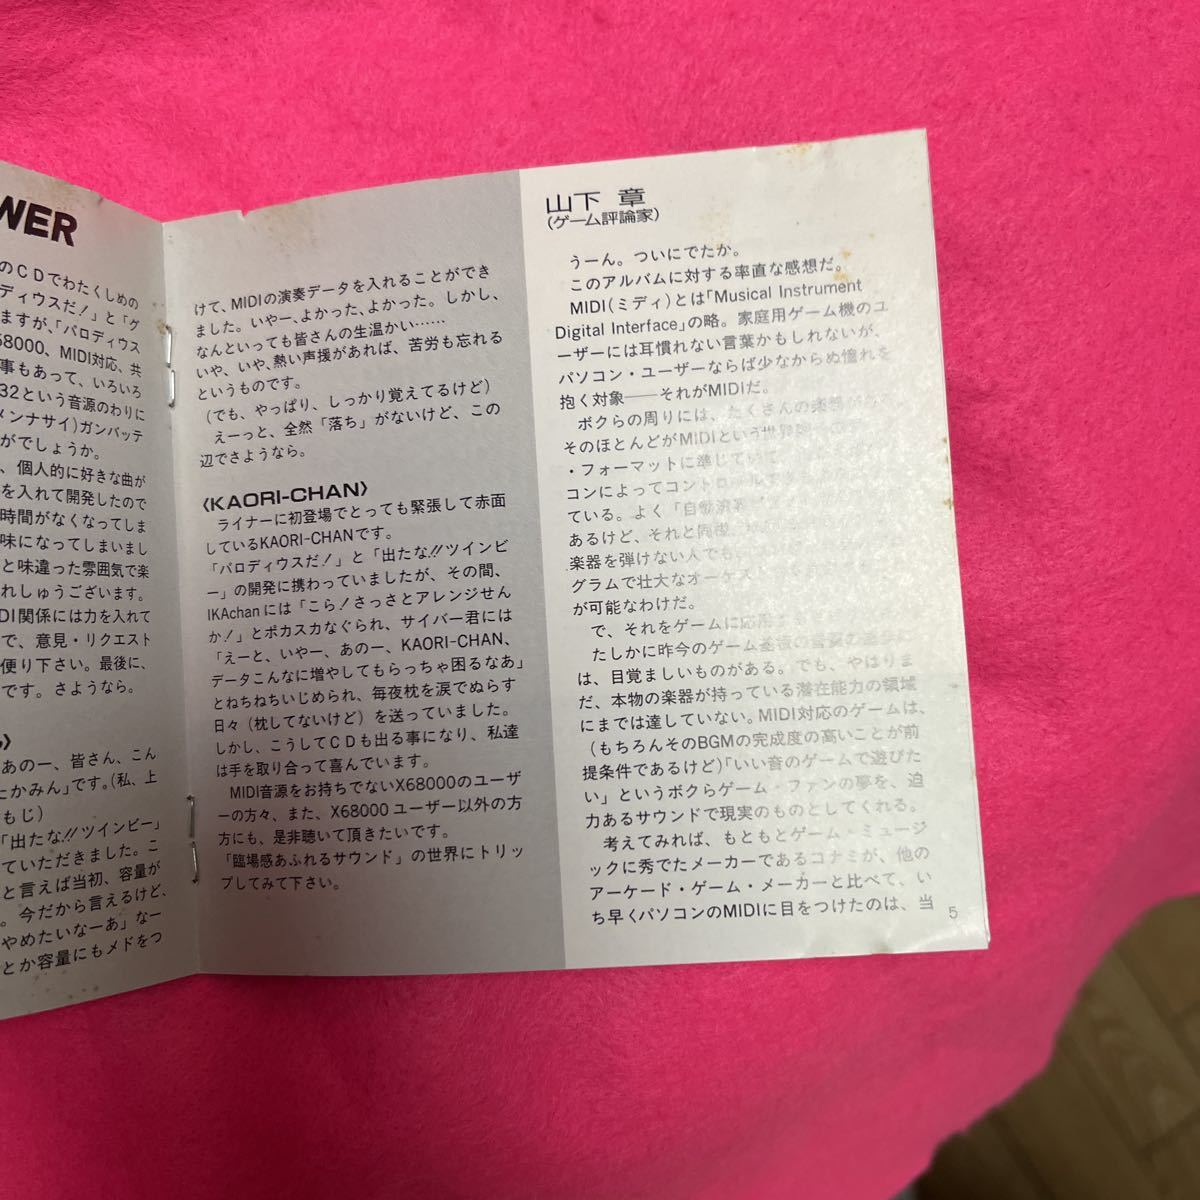 WER
のCDでわたくしめの
ディウスだ!」と「グ
ますが、「パロディウス
68000、MIDI対応、共
事もあって、いろいろ
32という音源のわりに
メンナサイ)ガンバッテ
がでしょうか。
、個人的に好きな曲が
を入れて開発したので
時間がなくなってしま
味になってしまいまし
と味違った雰囲気で楽
れしゅうございます。
DI関係には力を入れて
で、意見・リクエスト
便り下さい。最後に、
です。さようなら。
〉
あのー、皆さん、こん
たかみん」です。(私、上
もじ)
「出たな!!ツインビー」
ていただきました。こ
と言えば当初、容量が
。今だから言えるけど、
やめたいなーあ」なー
とか容量にもメドをつ
けて、MIDIの演奏データを入れることができ
ました。いやー、よかった、よかった。しかし、
なんといっても皆さんの生温かい……
いや、いや、熱い声援があれば、苦労も忘れる
というものです。
(でも、やっぱり、しっかり覚えてるけど)
えーっと、全然「落ち」がないけど、この
辺でさようなら。
〈KAORI-CHAN〉
ライナーに初登場でとっても緊張して赤面
しているKAORI-CHANです。
「パロディウスだ!」と「出たな!!ツインビ
ー」の開発に携わっていましたが、その間、
IKAchanには「こら!さっさとアレンジせん
か!」とポカスカなぐられ、サイバー君には
「えーと、いやー、あのー、KAORI-CHAN、
データこんなに増やしてもらっちゃ困るなあ」
とねちねちいじめられ、毎夜枕を涙でぬらす
日々(枕してないけど)を送っていました。
しかし、こうしてCDも出る事になり、私達
は手を取り合って喜んでいます。
MIDI音源をお持ちでないX68000のユーザ
ーの方々、また、X68000ユーザー以外の方
方にも、是非聴いて頂きたいです。
「臨場感あふれるサウンド」の世界にトリッ
プしてみて下さい。
山下 章
(ゲーム評論家)
うーん。ついにでたか。
このアルバムに対する率直な感想だ。
MIDI(ミディ)とは「Musical Instrument
Digital Interface」の略。家庭用ゲーム機のユ
ーザーには耳慣れない言葉かもしれないが、
パソコン・ユーザーならば少なからぬ憧れを
抱く対象――それがMIDIだ。
ボクらの周りには、たくさんの楽器が
そのほとんどがMIDIという世界
・フォーマットに準じていて
コンによってコントロール
ている。よく「自動演奏
あるけど、それと同様、
楽器を弾けない人でも、
グラムで壮大なオーケスト
が可能なわけだ。
で、それをゲームに応用
たしかに昨今のゲーム基板の音楽の進
は、目覚ましいものがある。でも、やはりま
だ、本物の楽器が持っている潜在能力の領域
にまでは達していない。MIDI対応のゲームは、
(もちろんそのBGMの完成度の高いことが前
提条件であるけど)「いい音のゲームで遊びた
い」というボクらゲーム・ファンの夢を、迫
力あるサウンドで現実のものとしてくれる。
考えてみれば、もともとゲーム・ミュージ
ックに秀でたメーカーであるコナミが、他の
アーケード・ゲーム・メーカーと比べて、い
ち早くパソコンのMIDIに目をつけたのは、当
5